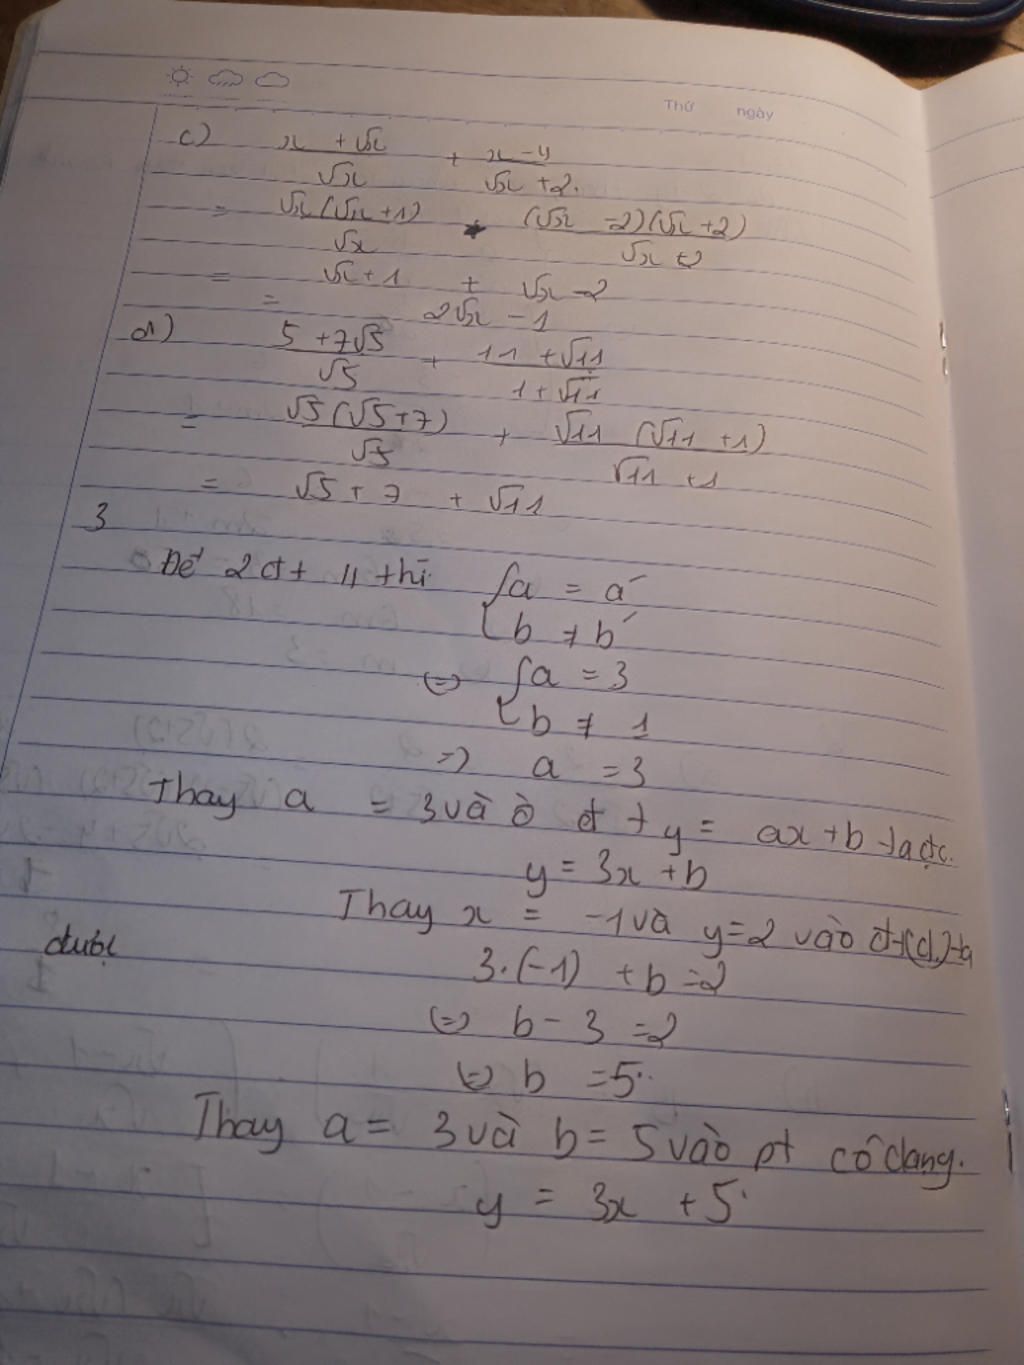 Thứ ngày
c) x + √x / √x + x - 4 / √x + 2.
= √x (√x + 1) / √x + (√x - 2)(√x + 2) / √x + 2
= √x + 1 + √x - 2
= 2√x - 1
d) 5 + 7√5 / √5 + 11 + √11 / 1 + √11
= √5 (√5 + 7) / √5 + √11 (√11 + 1) / √11 + 1
= √5 + 7 + √11
3
Để 2đt // thì { a = a'
b ≠ b'
(=) { a = 3
b ≠ 1
=) a = 3
Thay a = 3 và ò đt y = ax + b ta đc.
y = 3x + b
Thay x = -1 và y = 2 vào đt (d) ta
được 3.(-1) + b = 2
(=) b - 3 = 2
(=) b = 5.
Thay a = 3 và b = 5 vào pt có dạng.
y = 3x + 5.